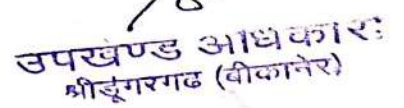 उपखण्ड अधिकारी
श्रीडूंगरगढ (बीकानेर)